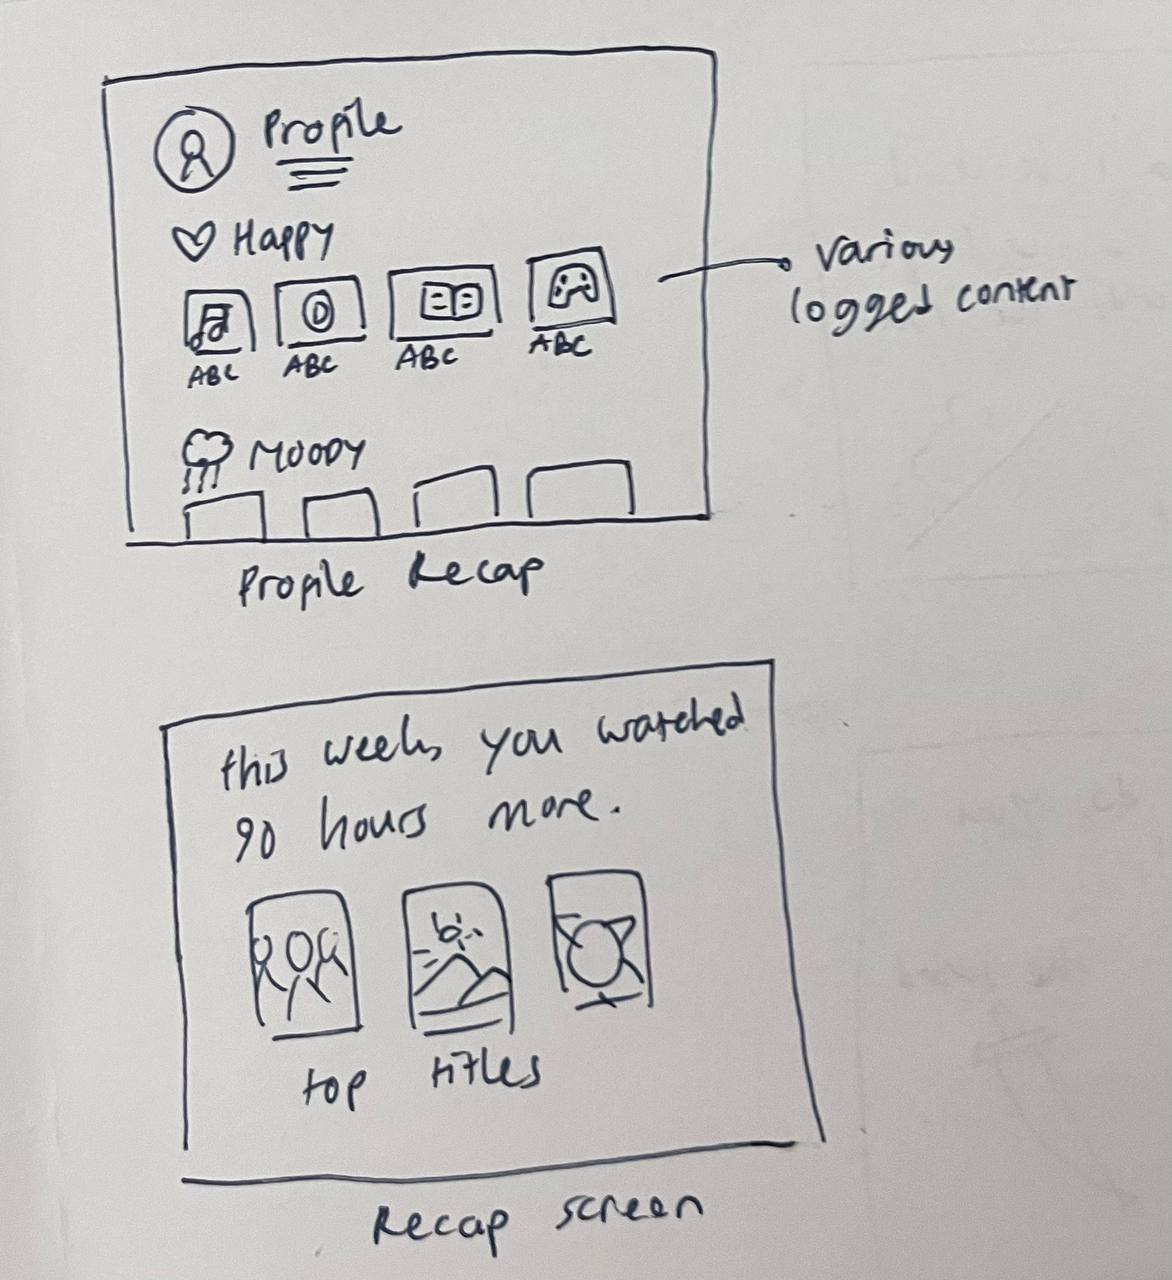 Profile
Happy
ABC
ABC
ABC
ABC
Various
logged content
MOODY
Profile Recap
this weeks you watched
90 hours more.
top titles
Recap screen